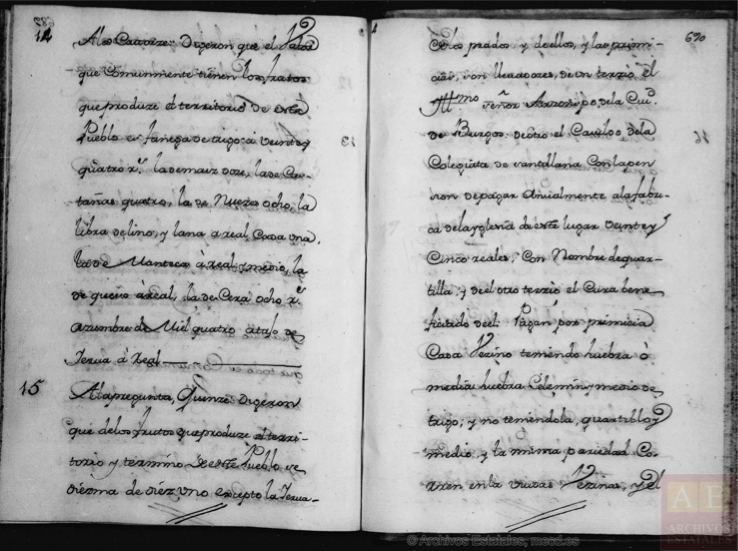 689
14
A las Catorze: Digeron que el Valor
que Comunmente tienen los frutos
que produze el territorio de este
Pueblo es fanega de trigo a Veinte y
quatro rs. la de maiz doze, la de Cas-
tañas quatro, la de Nuezes ocho, la
libra de lino, y lana a real Cada una,
la de Manteca a real y medio, la
de queso a real, la de Cera ocho rs.
azumbre de Miel quatro
Yerua à Real
15
A la pregunta, Quinze Digeron
que de los frutos que produze el terri-
torio y termino de este Pueblo se
diezma de diez uno excepto la Yerua-
690
de los prados y de ellos, y las primi-
cias, son lleuadores, de un terzio el
Yllmo señor Arzobispo de la Ciud.
de Burgos: de otro el Cauildo de la
Colegiata de santillana Con la pen
sion de pagar Anualmente a la fabri-
ca de la yglesia de este lugar Veinte y
Cinco reales, Con Nombre de quar-
tilla; y de el otro terzio el Cura bene
ficiado de el: Pagan por primicia
Cada Vezino teniendo huebra ò
media huebra Celemin y medio de
trigo, y no teniendola, quartillo y
medio y la misma paridad Co-
rren en la viudas Vezinas, y el
© Archivos Estatales, mecd.es
AE
ARCHIVOS
ESTATALES